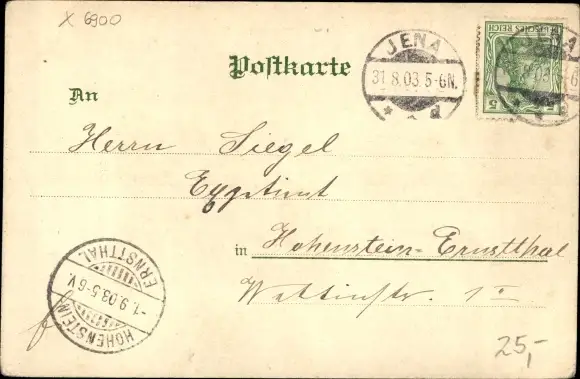 X 6900
JENA
31.8.03.5-6N.
d
DEUTSCHES REICH
5 5
Postkarte
An
Herrn Siegel
in Hohenstein-Ernstthal
Wettinstr. 1
HOHENSTEIN-ERNSTTHAL
-1.9.03.5-6V.
25,-